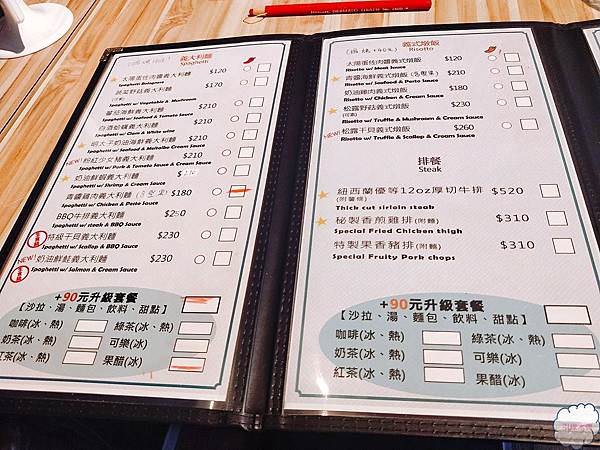 義大利麵
Spaghetti
太陽蛋佐肉醬義大利麵 $120
Spaghetti Bolognese
蔬菜野菇義大利麵 $170
(可素)
Spaghetti w/ Vegetable & Mushroom
蕃茄海鮮義大利麵 $210
Spaghetti w/ Seafood & Tomato Sauce
白酒蛤蠣義大利麵 $210
Spaghetti w/ Clam & White wine
明太子奶油海鮮義大利麵 $210
Spaghetti w/ Seafood & Mentaiko Cream Sauce
NEW! 粉紅少女豬義大利麵 $210
Spaghetti w/ Pork & Tomato Sauce & Cream Sauce
奶油鮮蝦義大利麵
Spaghetti w/ Shrimp & Cream Sauce
青醬雞肉義大利麵 $180
Spaghetti w/ Chicken & Pesto Sauce
BBQ牛排義大利麵
Spaghetti w/ steak & BBQ Sauce
特級干貝義大利麵 $230
Spaghetti w/ Scallop & BBQ Sauce
NEW! 奶油鮮鮭義大利麵 $230
Spaghetti w/ Salmon & Cream Sauce
+90元升級套餐
【沙拉、湯、麵包、飲料、甜點】
咖啡(冰、熱) 綠茶(冰、熱)
奶茶(冰、熱) 可樂(冰)
紅茶(冰、熱) 果醋(冰)
義式燉飯
Risotto
太陽蛋佐肉醬義式燉飯 $120
Risotto w/ Meat Sauce
青醬海鮮義式燉飯 $210
Risotto w/ Seafood & Pesto Sauce
奶油雞肉義式燉飯 $180
Risotto w/ Chicken & Cream Sauce
松露野菇義式燉飯 $230
(可素)
Risotto w/ Truffle & Mushroom & Cream Sauce
NEW! 松露干貝義式燉飯 $260
Risotto w/ Truffle & Scallop & Cream Sauce
排餐
Steak
紐西蘭優等12oz厚切牛排 $520
(附薯條)
Thick cut sirloin steak
秘製香煎雞排(附麵) $310
Special Fried Chicken thigh
特製果香豬排(附麵) $310
Special Fruity Pork chops
+90元升級套餐
【沙拉、湯、麵包、飲料、甜點】
咖啡(冰、熱) 綠茶(冰、熱)
奶茶(冰、熱) 可樂(冰)
紅茶(冰、熱) 果醋(冰)